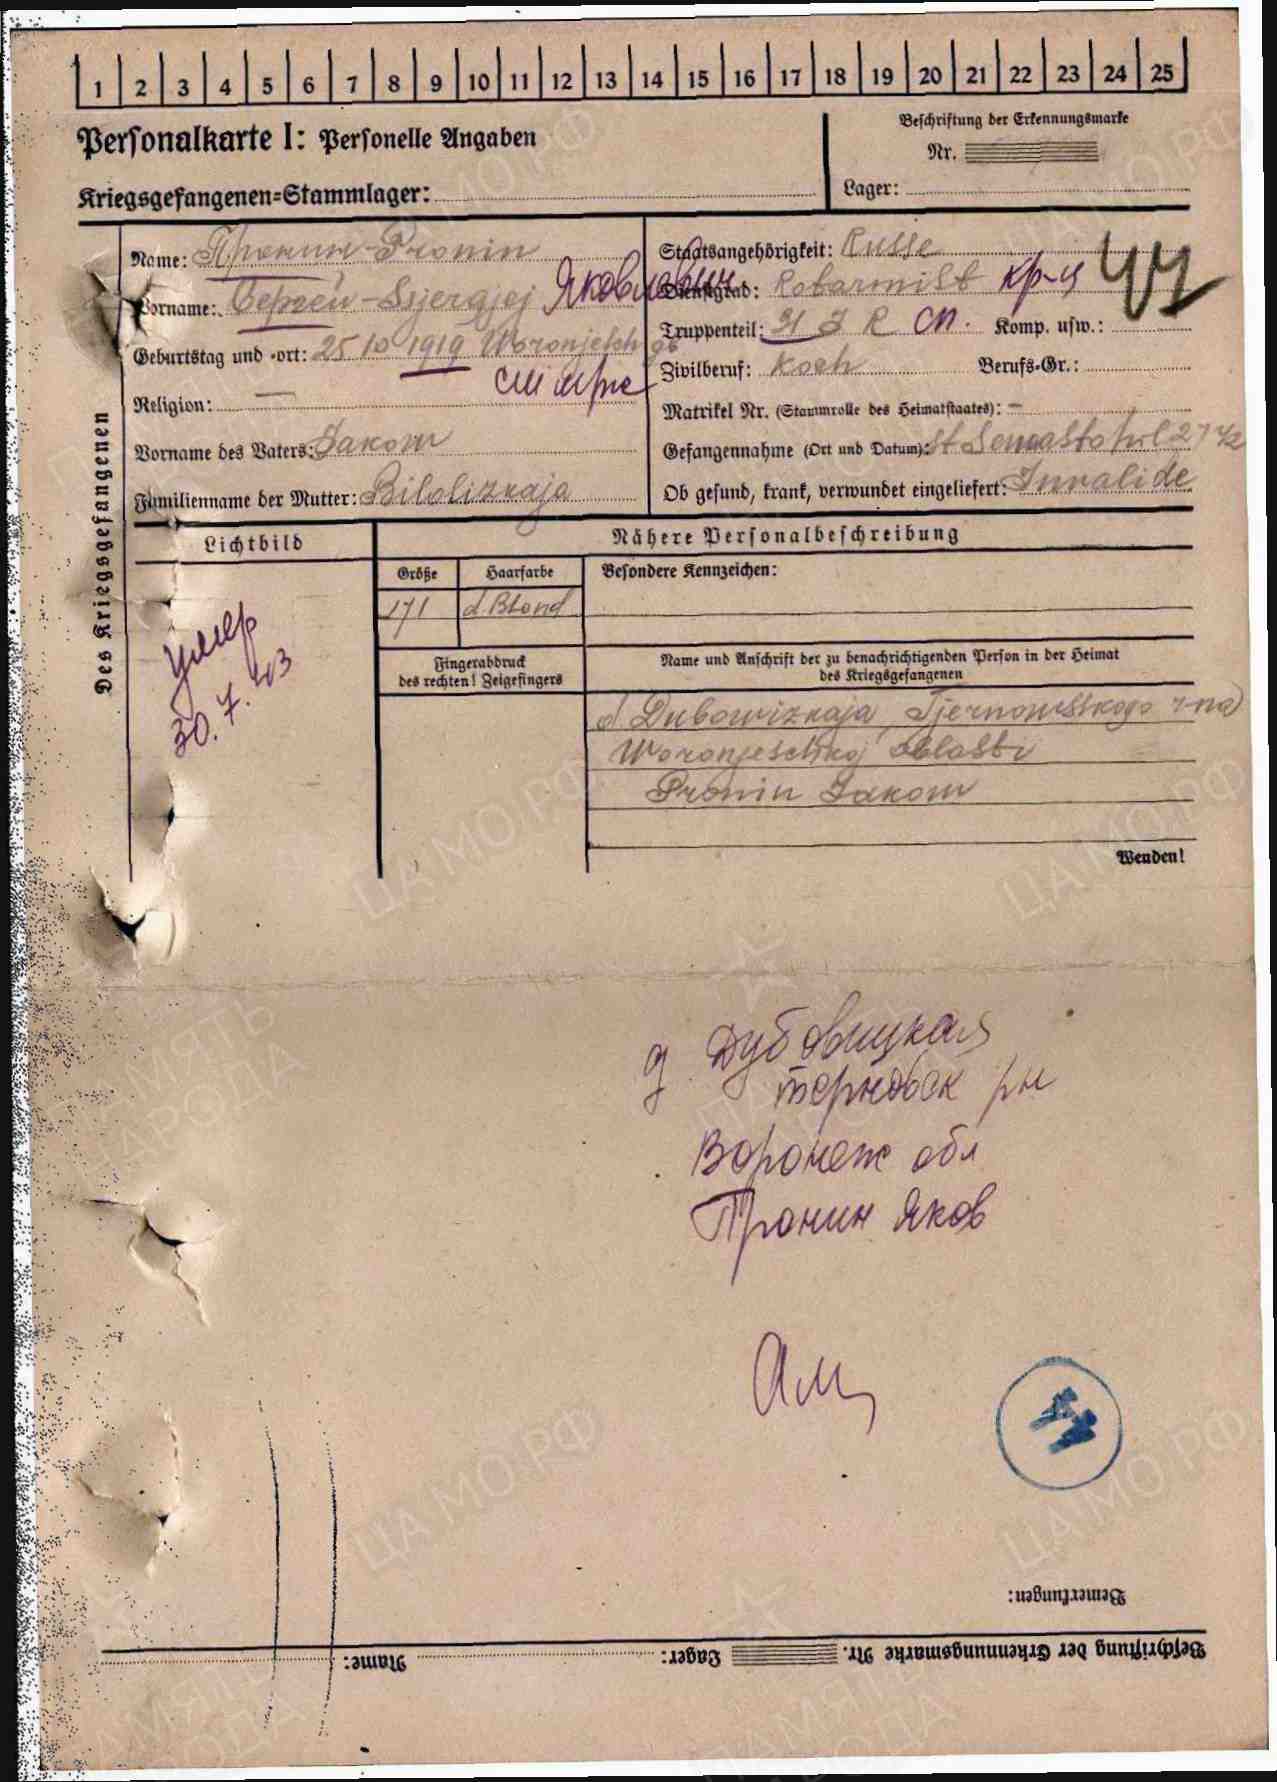 1 2 3 4 5 6 7 8 9 10 11 12 13 14 15 16 17 18 19 20 21 22 23 24 25
Personalkarte I: Personelle Angaben
Beschriftung der Erkennungsmarke
Nr.
Kriegsgefangenen=Stammlager:
Lager:
Des Kriegsgefangenen
Name: Пронин-Pronin
Vorname: Сергей-Ssjergjej Яковлевич
Geburtstag und -ort: 25 10 1919 Woronjesh
Religion: —
Vorname des Vaters: Jakow
Familienname der Mutter: Bilolizkaja
Staatsangehörigkeit: Russe
Dienstgrad: Rotarmist кр-ц
47
Truppenteil: 31 J R СП. Komp. usw.:
Zivilberuf: Koch Berufs-Gr.:
Matrikel Nr. (Stammrolle des Heimatstaates): —
Gefangennahme (Ort und Datum): st Sewastopol
Ob gesund, krank, verwundet eingeliefert: Invalide
Lichtbild
умер
30.7.43
Nähere Personalbeschreibung
Größe Haarfarbe Besondere Kennzeichen:
171 d. Blond
Fingerabdruck
des rechten! Zeigefingers
Name und Anschrift der zu benachrichtigenden Person in der Heimat
des Kriegsgefangenen
d. Dubowizkaja, Tjernowsskogo r-na
Woronjeschkoj oblasti
Pronin Jakow
Wenden!
д. Дубовицкая
терновск рн
Воронеж обл
Пронин Яков
Bemerkungen:
Beschriftung der Erkennungsmarke Nr. Lager: Name:
ЦА МО.РФ
ПАМЯТЬ
НАРОДА